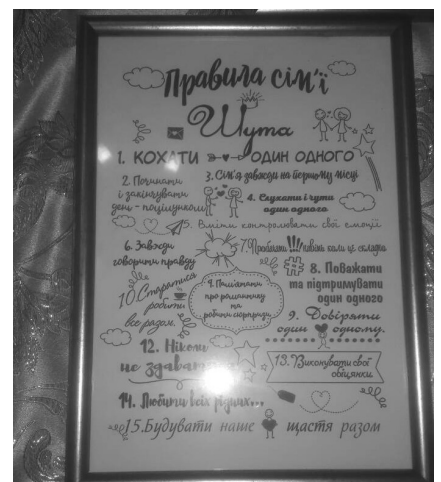 Правила сім'ї
Шута
1. КОХАТИ ОДИН ОДНОГО
2. Починати
і закінчувати
день - поцілунком
3. Сім'я завжди на першому місці
4. Слухати і чути
один одного
5. Вміти контролювати свої емоції
6. Завжди
говорити правду
7. Пробачити!!! навіть коли це складно
# 8. Поважати
та підтримувати
один одного
9. Пам'ятати
про романтику
та
робити сюрпризи
10. Старатись
робити
все разом.
9. Довіряти
один одному.
12. Ніколи
не здавати
13. Виконувати свої
обіцянки
14. Любити всіх рідних...
15. Будувати наше щастя разом